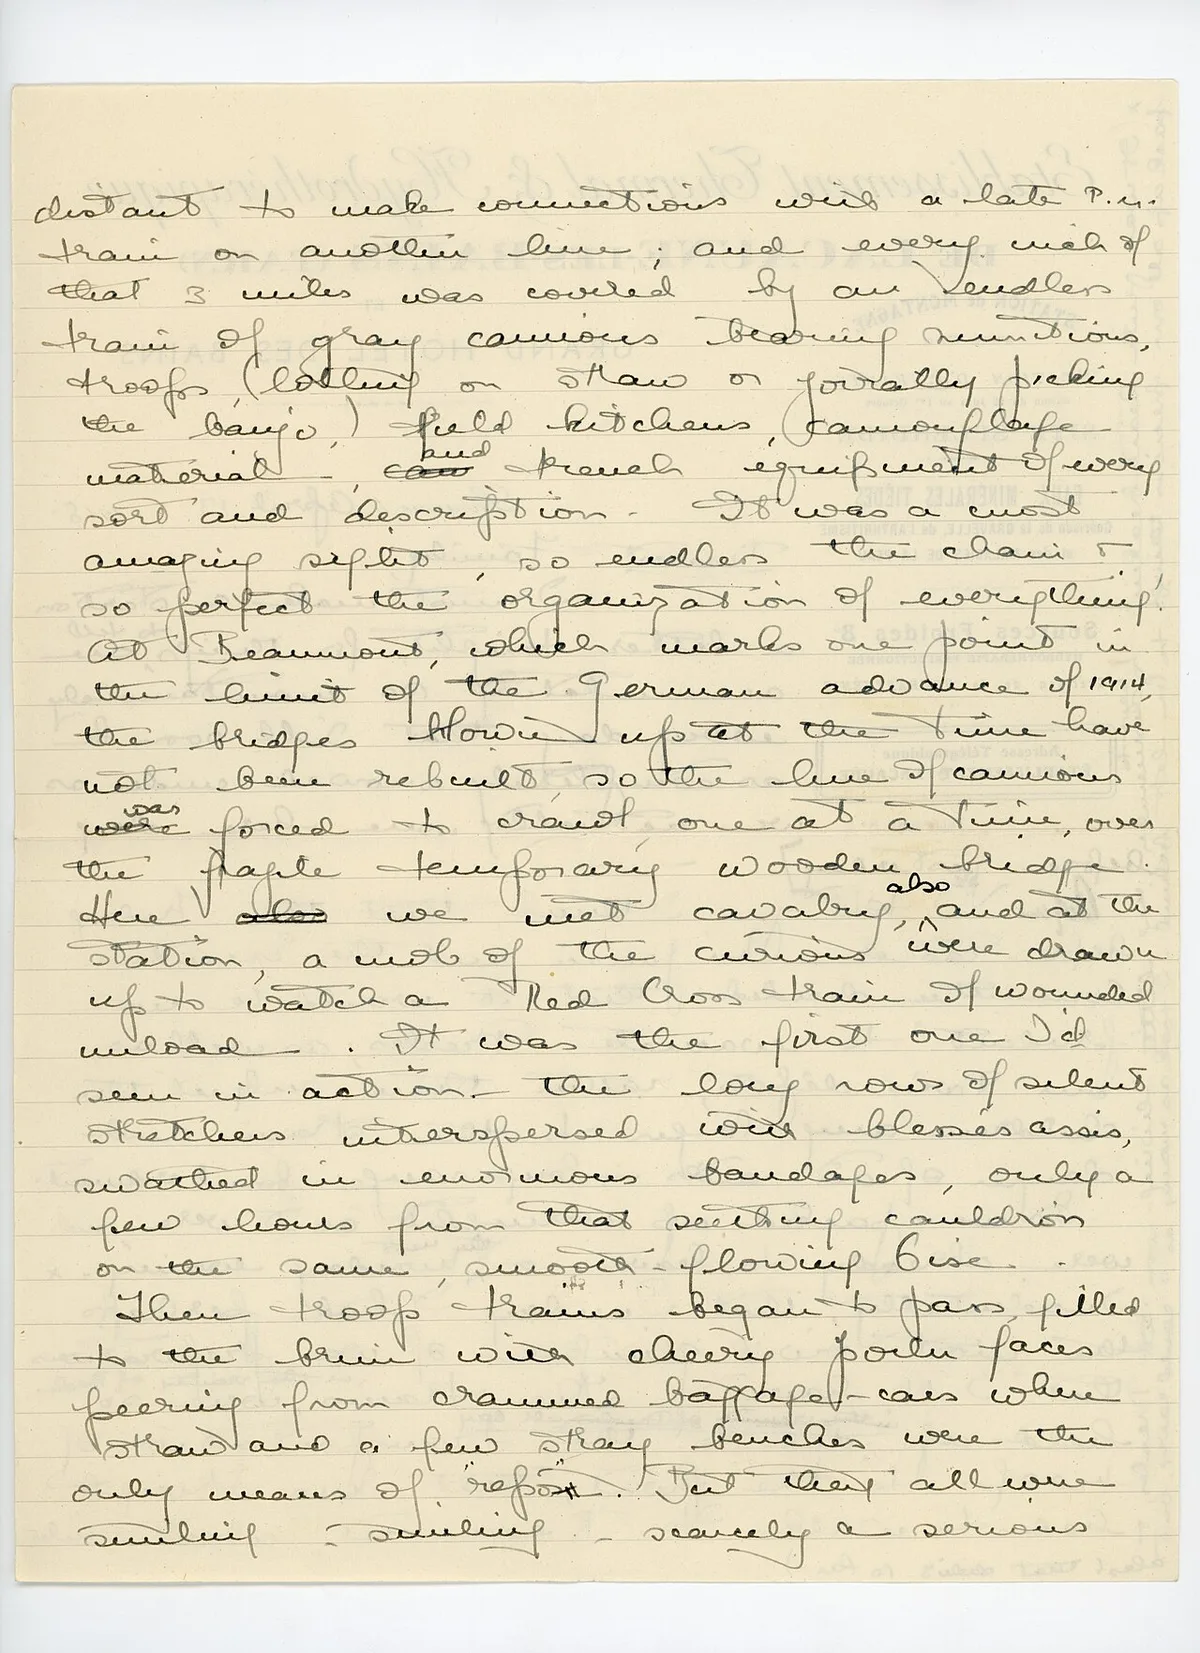 distant to make connections with a late P.M.
train on another line; and every inch of
that 3 miles was covered by an endless
train of gray camions bearing munitions,
troops, (lolling on straw or jovially picking
the banjo,) field kitchens, camouflage
material, and trench equipment of every
sort and description. It was a most
amazing sight, so endless the chain &
so perfect the organization of everything.
At Beaumont, which marks one point in
the limit of the German advance of 1914,
the bridges blown up at the time have
not been rebuilt, so the line of camions
were was forced to crawl one at a time, over
the fragile temporary wooden bridge.
Here also we met cavalry, also and at the
station, a mob of the curious were drawn
up to watch a Red Cross train of wounded
unload. It was the first one I'd
seen in action - the long rows of silent
stretchers interspersed with blessés assis,
swathed in enormous bandages, only a
few hours from that seething cauldron
on the same, smooth-flowing Oise.
Then troop trains began to pass, filled
to the brim with cheery poilu faces
peering from crammed baggage-cars where
straw and a few stray benches were the
only means of "repos". But they all were
smiling - smiling - scarcely a serious